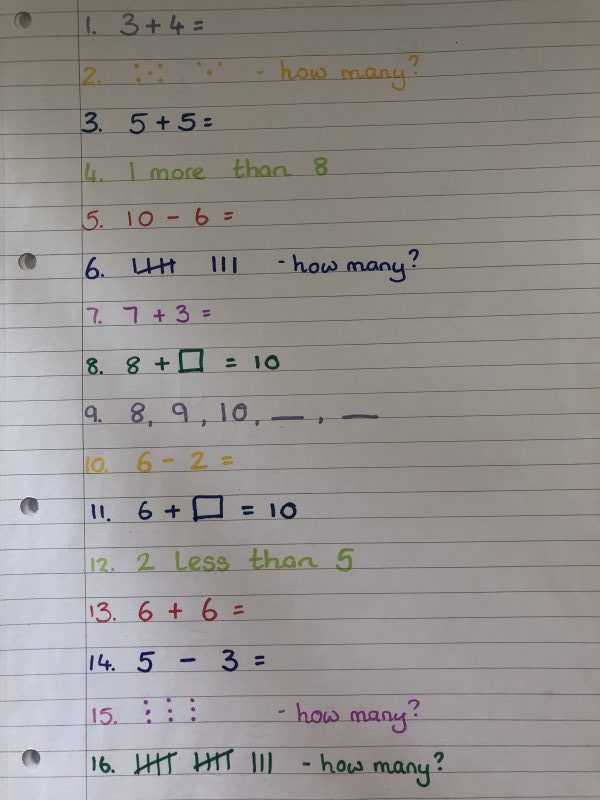 1. 3 + 4 =
2. - how many?
3. 5 + 5 =
4. 1 more than 8
5. 10 - 6 =
6. 𝍸 ||| - how many?
7. 7 + 3 =
8. 8 + □ = 10
9. 8, 9, 10, __ , __
10. 6 - 2 =
11. 6 + □ = 10
12. 2 less than 5
13. 6 + 6 =
14. 5 - 3 =
15. - how many?
16. 𝍸 𝍸 ||| - how many?